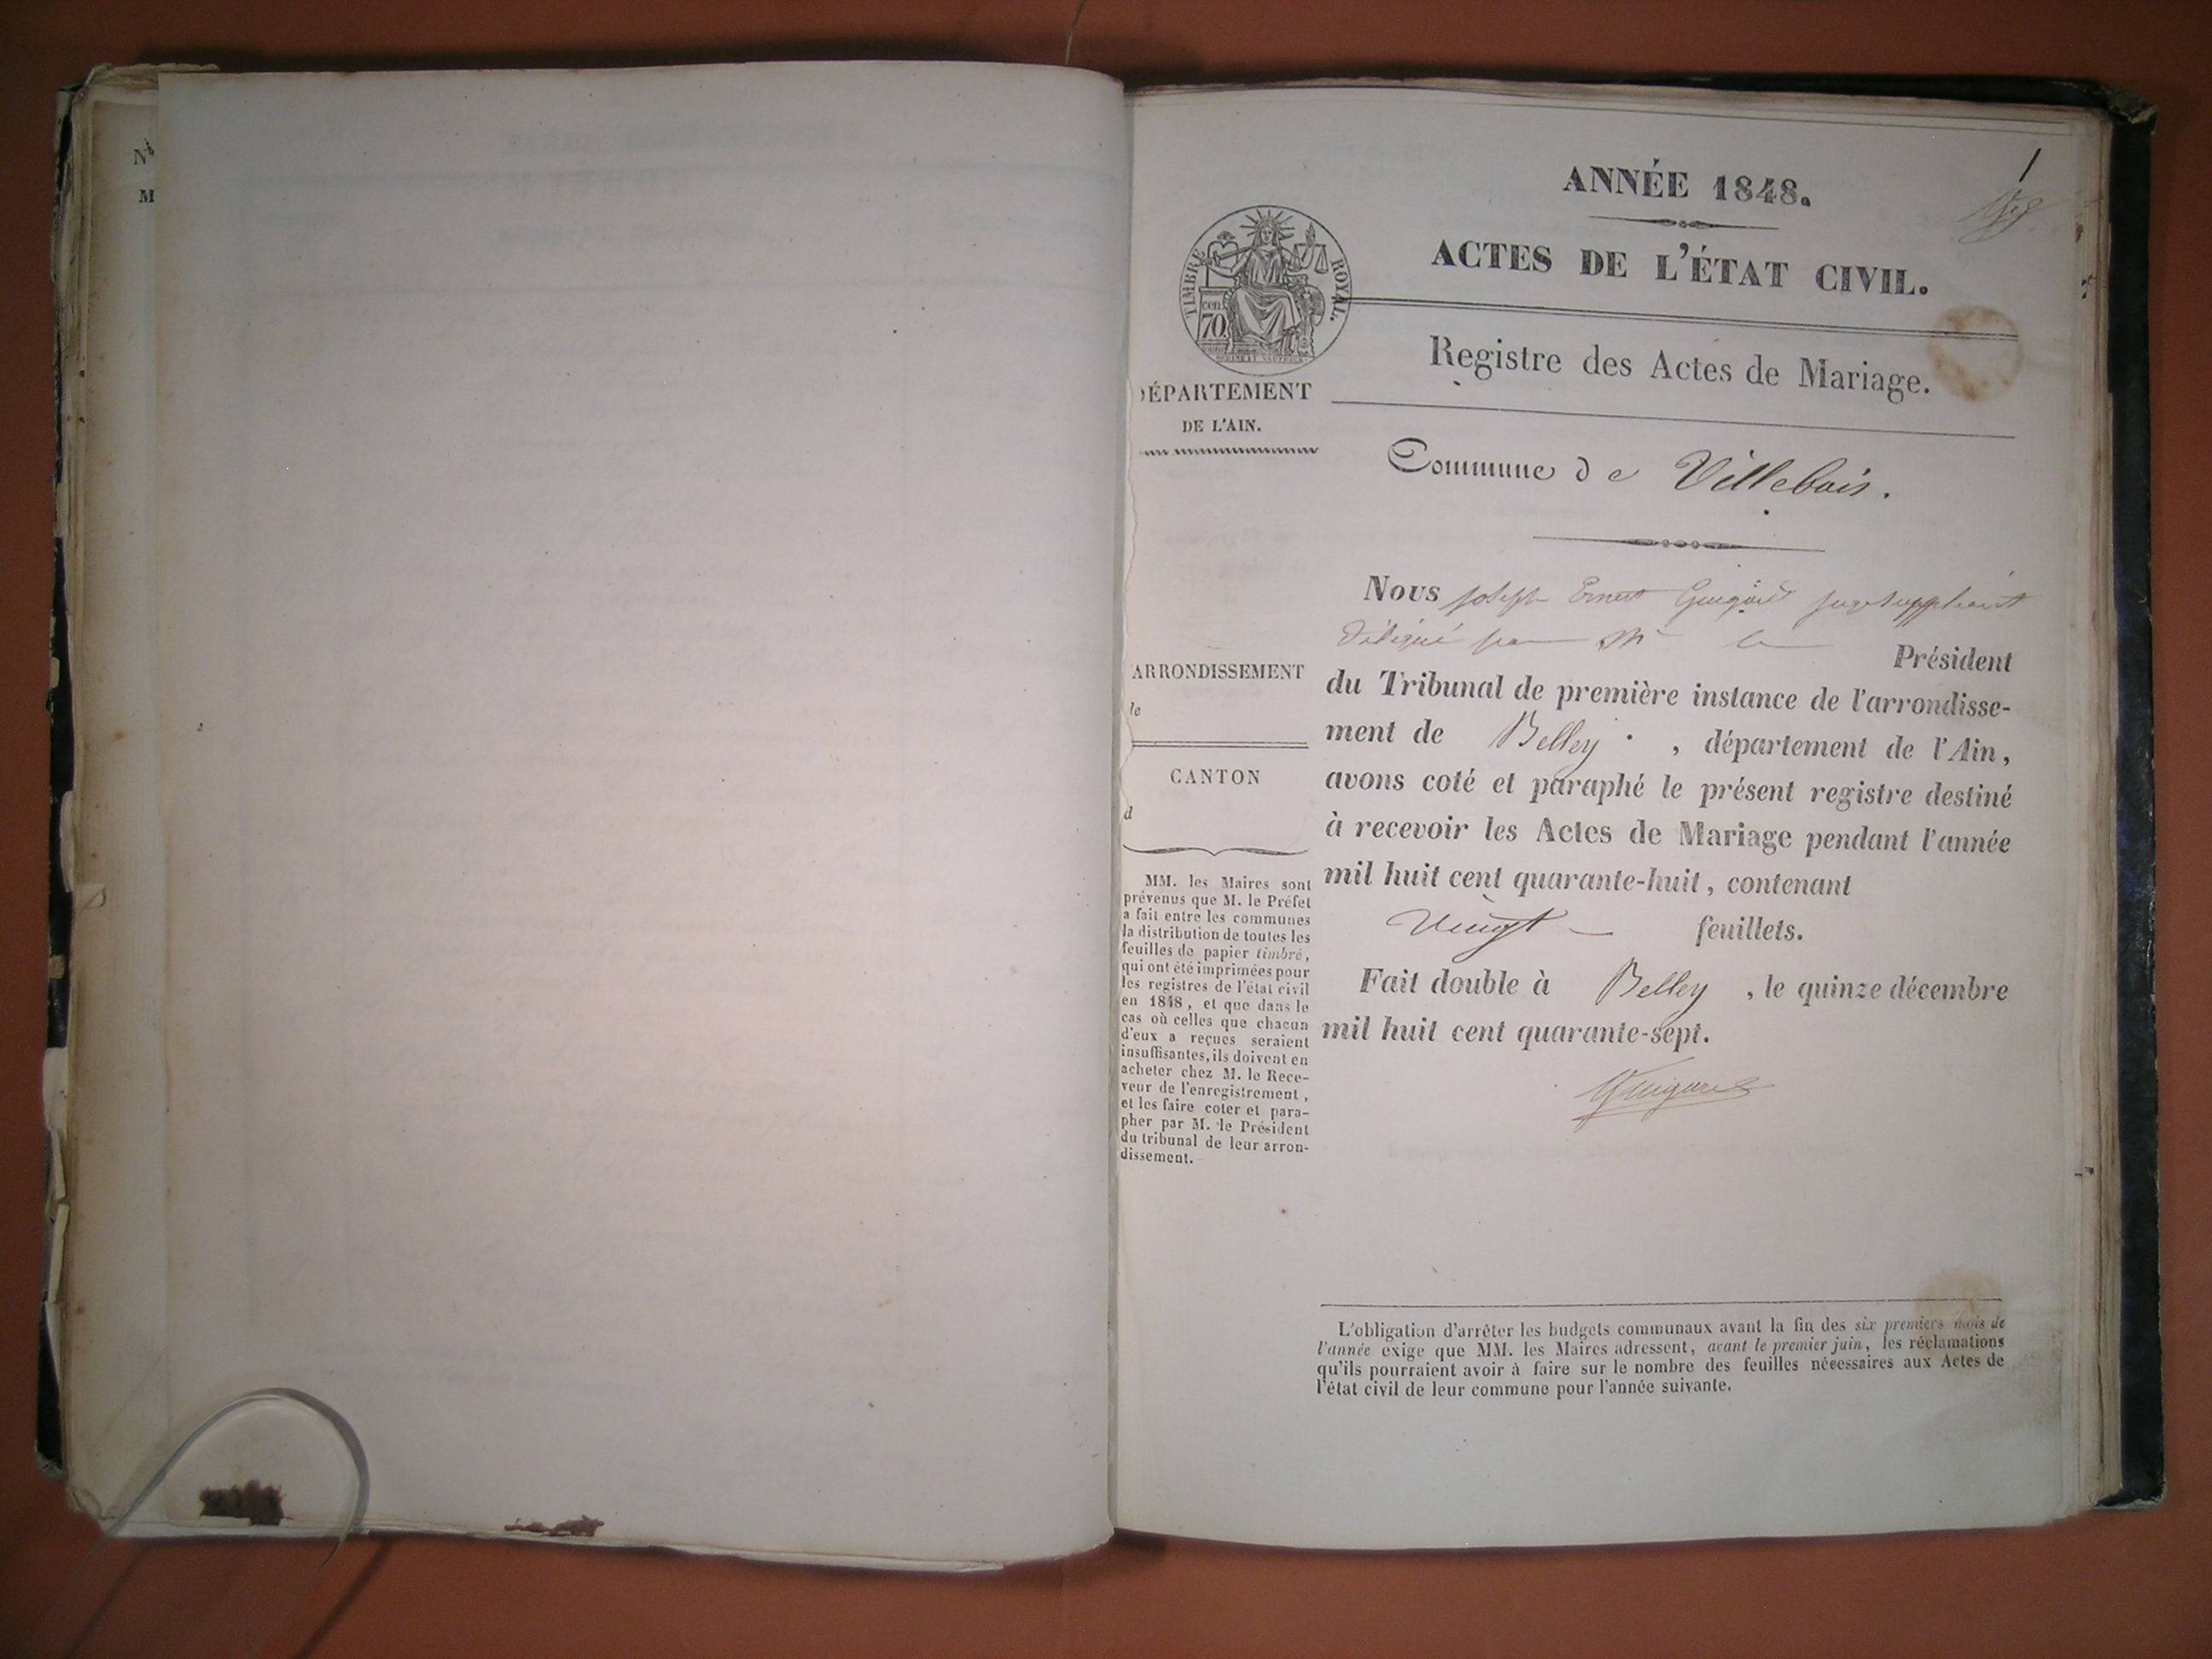 Nº
M
1
ANNÉE 1848.
ACTES DE L'ÉTAT CIVIL.
TIMBRE ROYAL.
cen
70
Registre des Actes de Mariage.
DÉPARTEMENT
DE L'AIN.
Commune de Villebois.
Nous Joseph Ernest juge suppléant
délégué par Mr le Président
du Tribunal de première instance de l'arrondisse-
ment de Belley , département de l'Ain,
avons coté et paraphé le présent registre destiné
à recevoir les Actes de Mariage pendant l'année
mil huit cent quarante-huit, contenant
Vingt feuillets.
Fait double à Belley , le quinze décembre
mil huit cent quarante-sept.
ARRONDISSEMENT
de
CANTON
d
MM. les Maires sont
prévenus que M. le Préfet
a fait entre les communes
la distribution de toutes les
feuilles de papier timbré,
qui ont été imprimées pour
les registres de l'état civil
en 1848, et que dans le
cas où celles que chacun
d'eux a reçues seraient
insuffisantes, ils doivent en
acheter chez M. le Rece-
veur de l'enregistrement,
et les faire coter et para-
pher par M. le Président
du tribunal de leur arron-
dissement.
L'obligation d'arrêter les budgets communaux avant la fin des six premiers mois de
l'année exige que MM. les Maires adressent, avant le premier juin, les réclamations
qu'ils pourraient avoir à faire sur le nombre des feuilles nécessaires aux Actes de
l'état civil de leur commune pour l'année suivante.